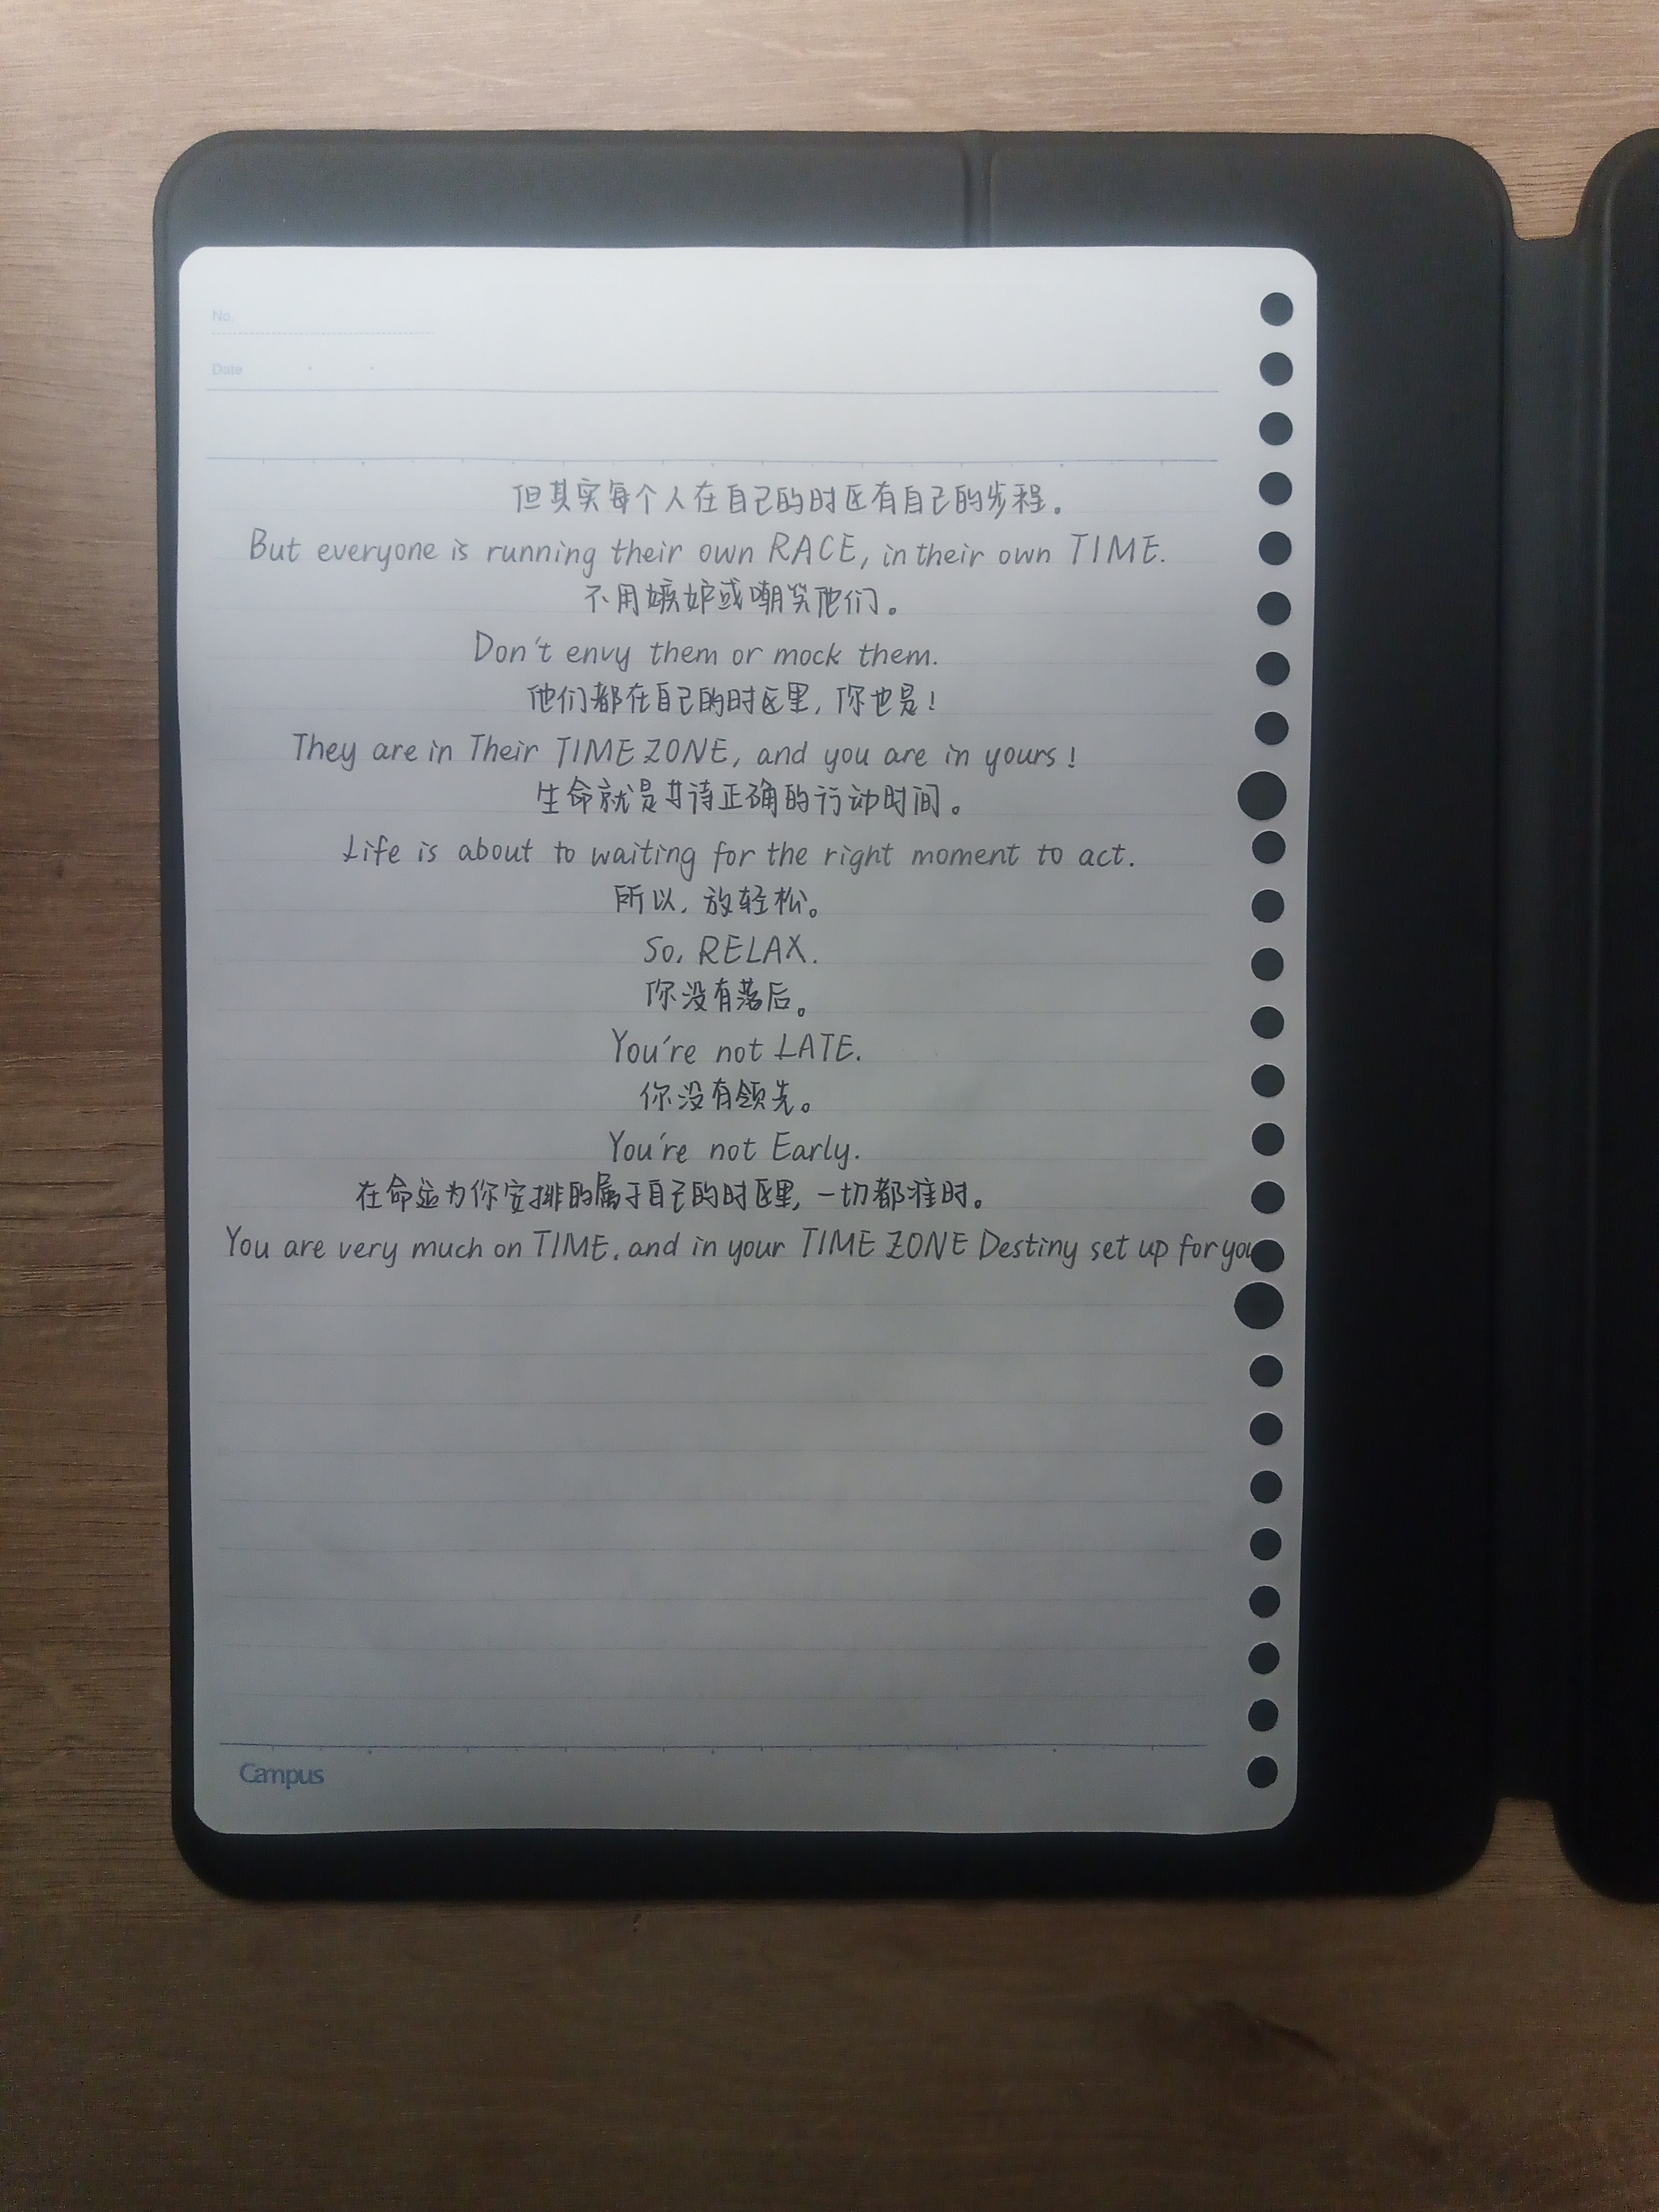 No.
Date
但其实每个人在自己的时区有自己的步程。
But everyone is running their own RACE, in their own TIME.
不用嫉妒或嘲笑他们。
Don't envy them or mock them.
他们都在自己的时区里,你也是!
They are in Their TIME ZONE, and you are in yours!
生命就是等待正确的行动时间。
Life is about to waiting for the right moment to act.
所以,放轻松。
So, RELAX.
你没有落后。
You're not LATE.
你没有领先。
You're not Early.
在命运为你安排的属于自己的时区里,一切都准时。
You are very much on TIME. and in your TIME ZONE Destiny set up for you
Campus